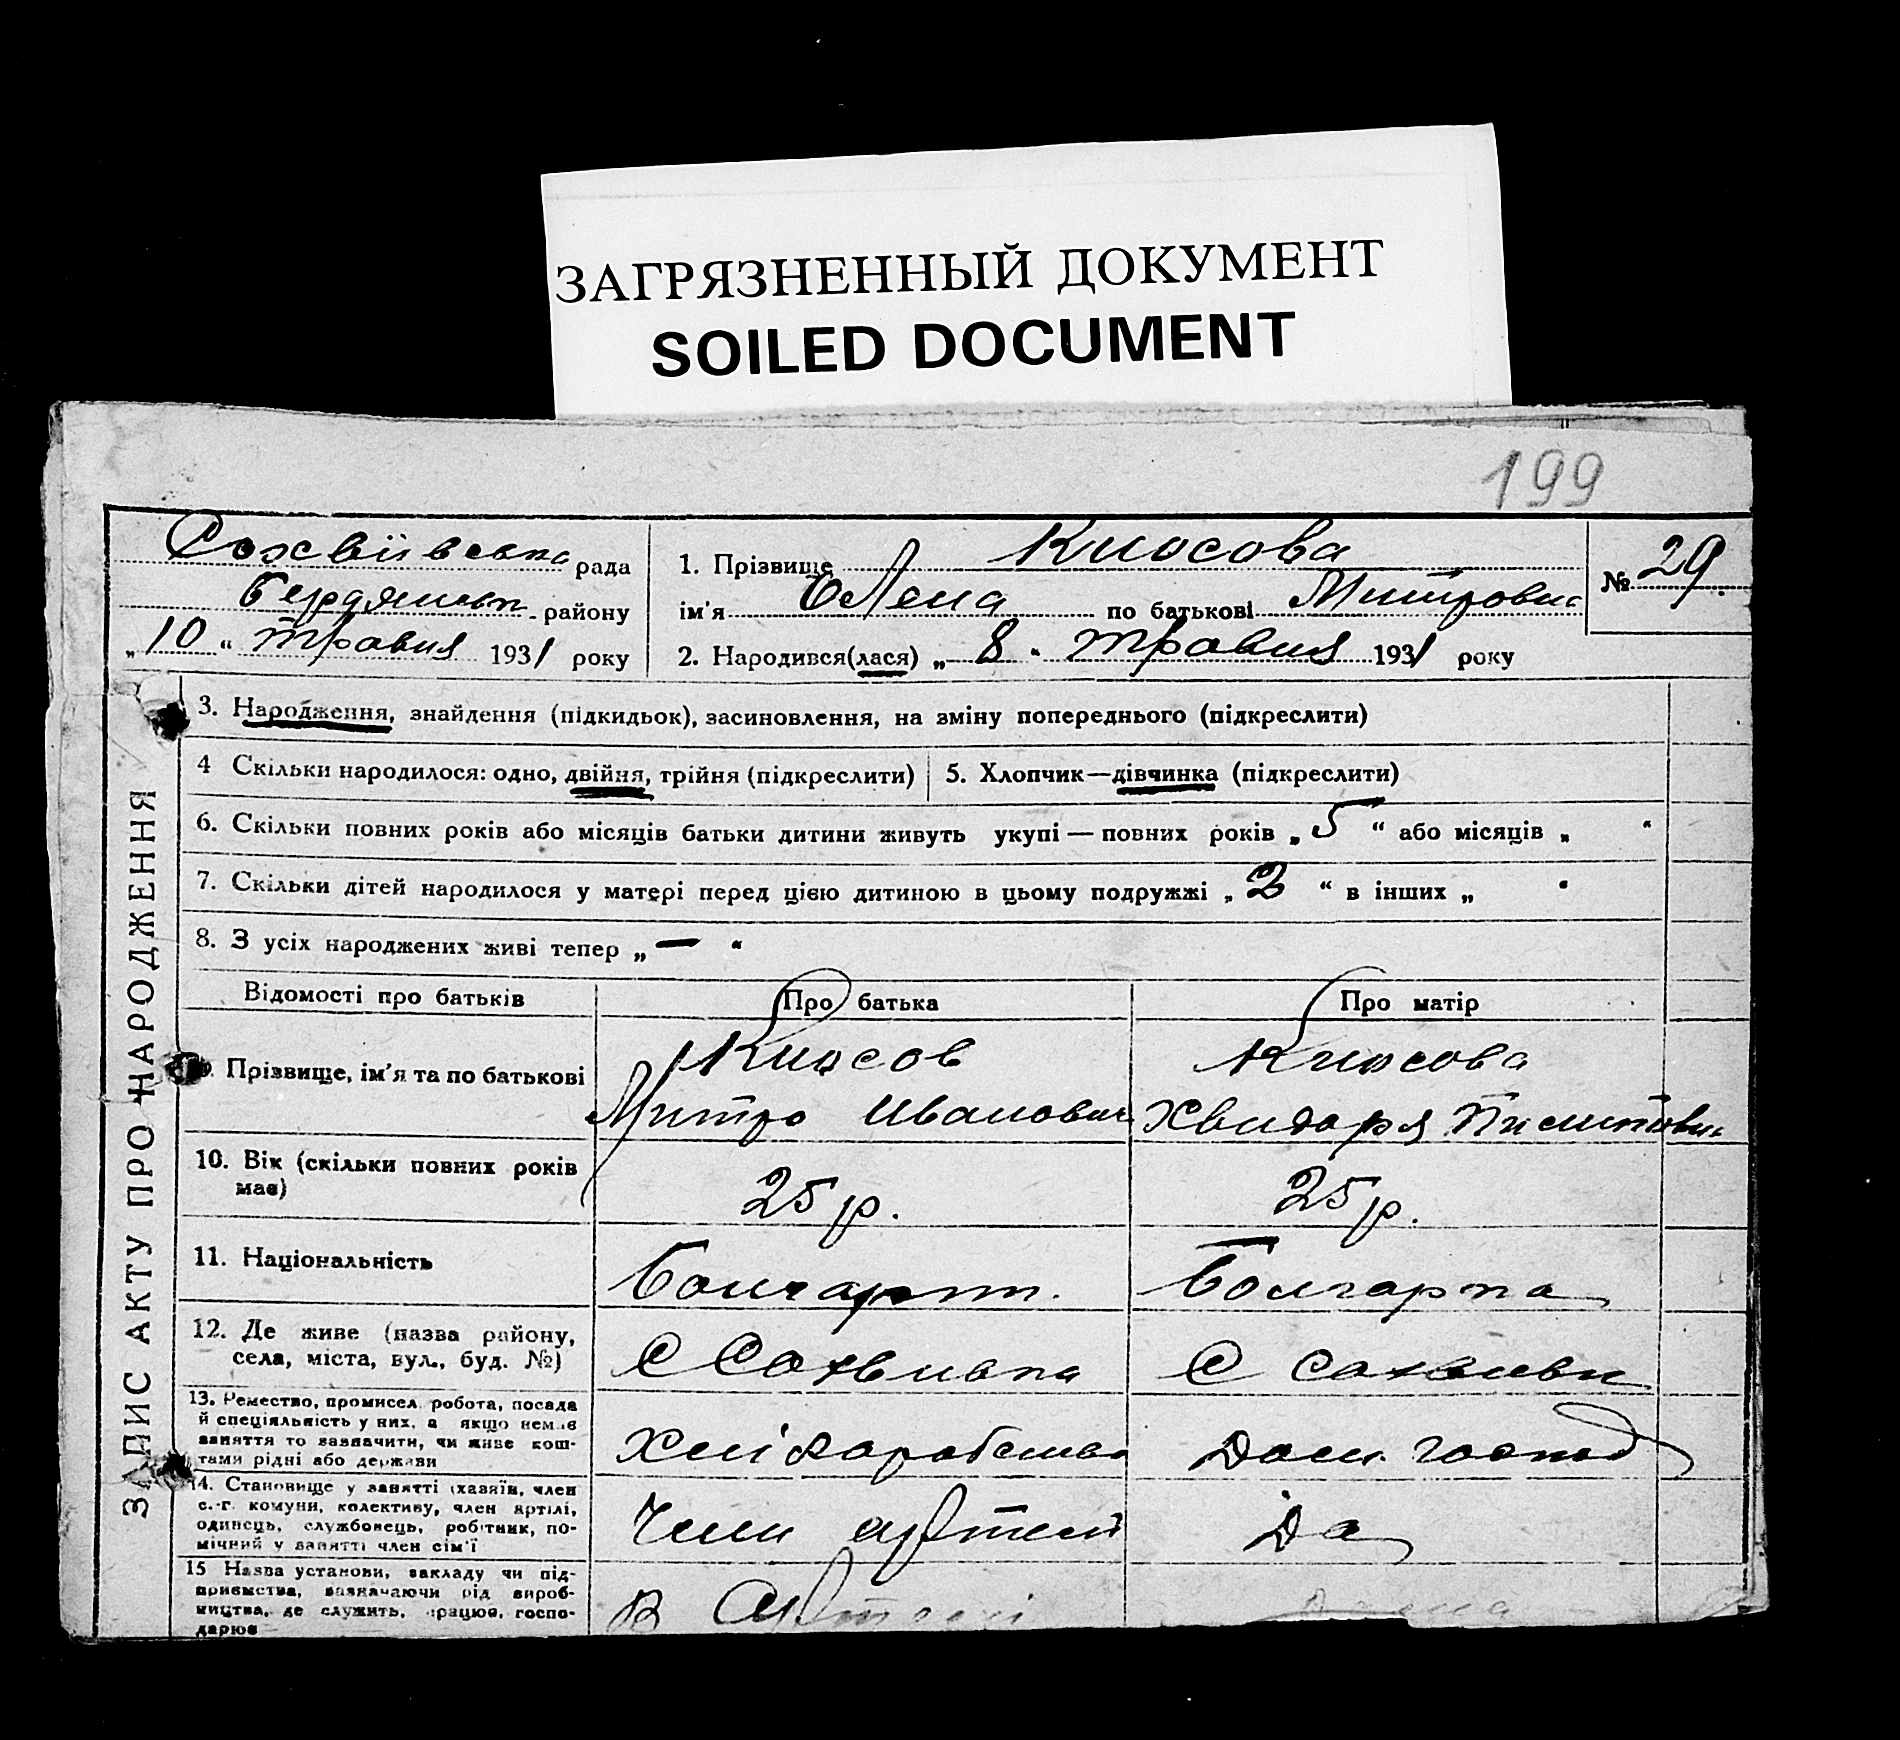 ЗАГРЯЗНЕННЫЙ ДОКУМЕНТ
SOILED DOCUMENT
199
ЗАПИС АКТУ ПРО НАРОДЖЕННЯ
Сохвіівська рада
Бердянськ. району
„10“ травня 1931 року
1. Прізвище Кюсова
ім'я Олена по батькові Митровна
2. Народився(лася) „8“ травня 1931 року
№ 29.
3. Народження, знайдення (підкидьок), засиновлення, на зміну попереднього (підкреслити)
4 Скільки народилося: одно, двійня, трійня (підкреслити)
5. Хлопчик—дівчинка (підкреслити)
6. Скільки повних років або місяців батьки дитини живуть укупі — повних років „5“ або місяців „ “
7. Скільки дітей народилося у матері перед цією дитиною в цьому подружжі „2“ в інших „ “
8. З усіх народжених живі тепер „—“
Відомості про батьків Про батька Про матір
Прізвище, ім'я та по батькові
Кюсов
Митро Иванович
Кюсова
Хвидоря
10. Вік (скільки повних років
має)
25 р.
25 р.
11. Національність
Болгарин.
Болгарка
12. Де живе (назва району,
села, міста, вул., буд. №)
С Сохвиевка
С Сохвиевки
13. Ремество, промисел, робота, посада
й спеціяльність у них, а якщо немає
заняття то зазначити, чи живе кош-
тами рідні або держави
Хліборобство
Дом. господ
14. Становище у занятті (хазяїн, член
с.-г. комуни, колективу, член артілі,
одинець, службовець, робітник, по-
мічний у занятті член сім'ї
Член артели
Да
15 Назва установи, закладу чи під-
приємства, зазначаючи рід вироб-
ництва, де служить, працює, госпо-
дарює
В Артелі